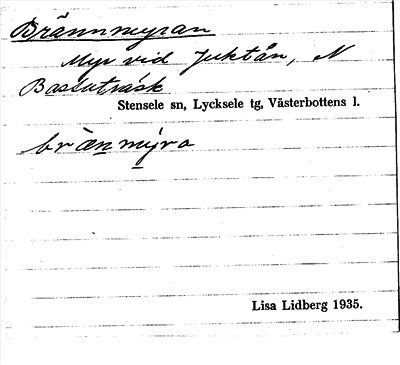 Brännmyran
Myr vid Juktån, N
Bastuträsk
Stensele sn, Lycksele tg, Västerbottens l.
brànmýra
Lisa Lidberg 1935.